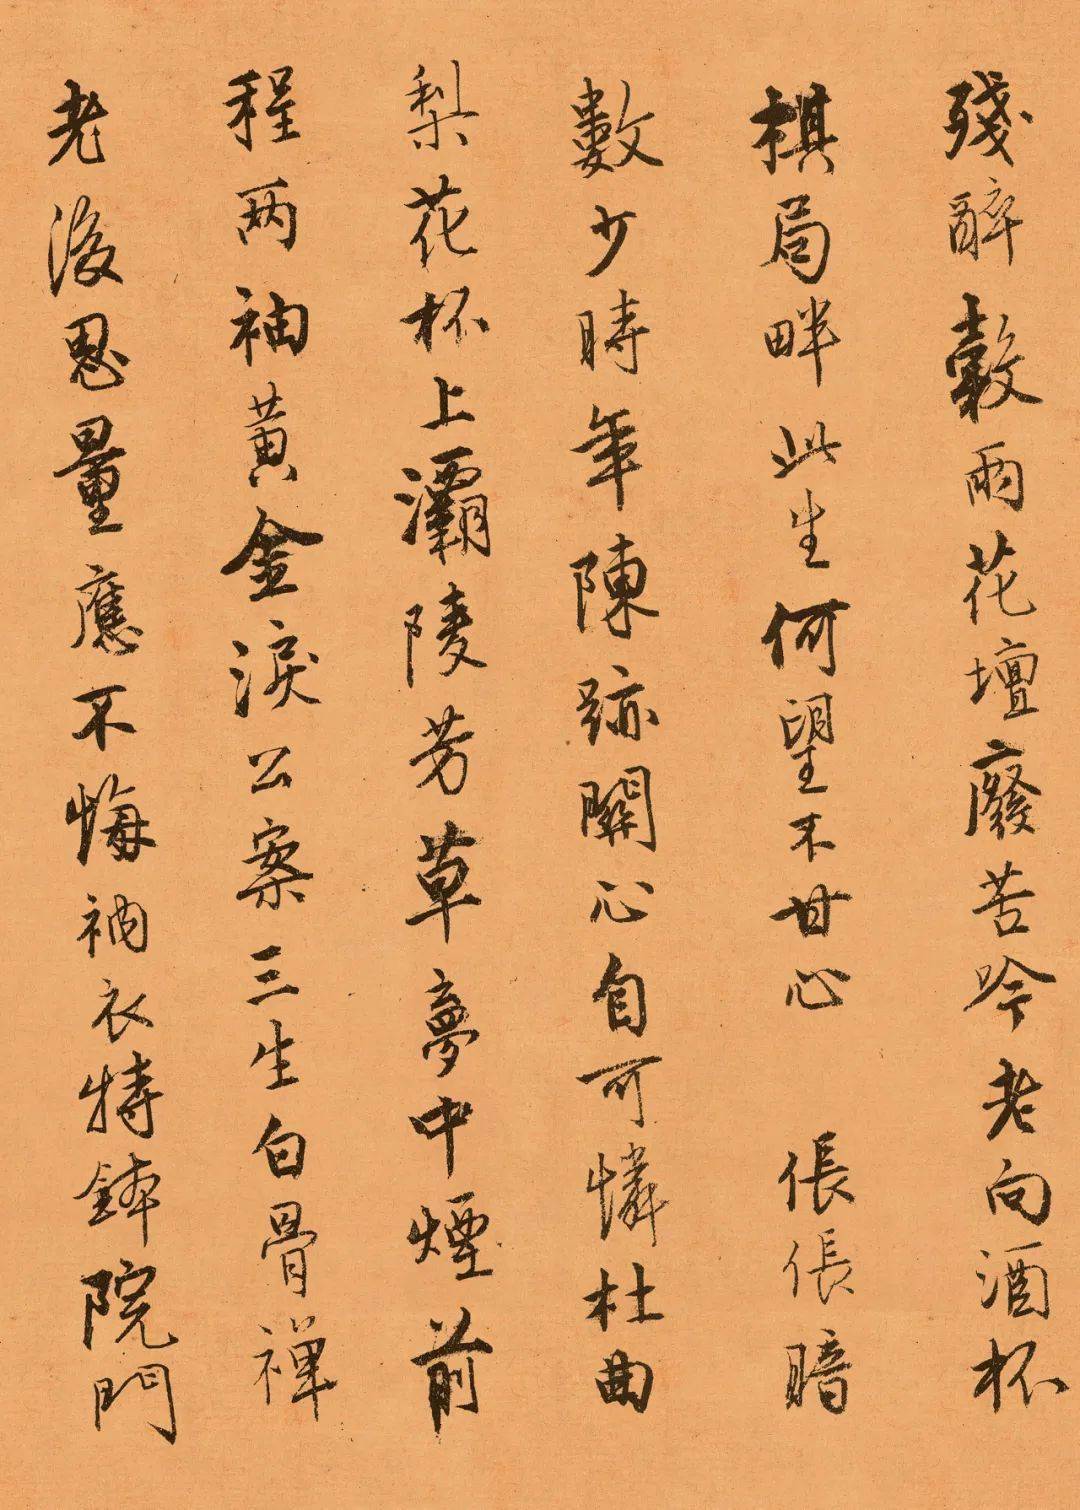 殘醉穀雨花壇廢苦吟老向酒杯
棋局畔此生何望不甘心 倀倀暗
數少時年陳跡關心自可憐杜曲
梨花杯上灞陵芳草夢中煙前
程两袖黃金淚公案三生白骨禅
老後思量應不悔衲衣持鉢院門